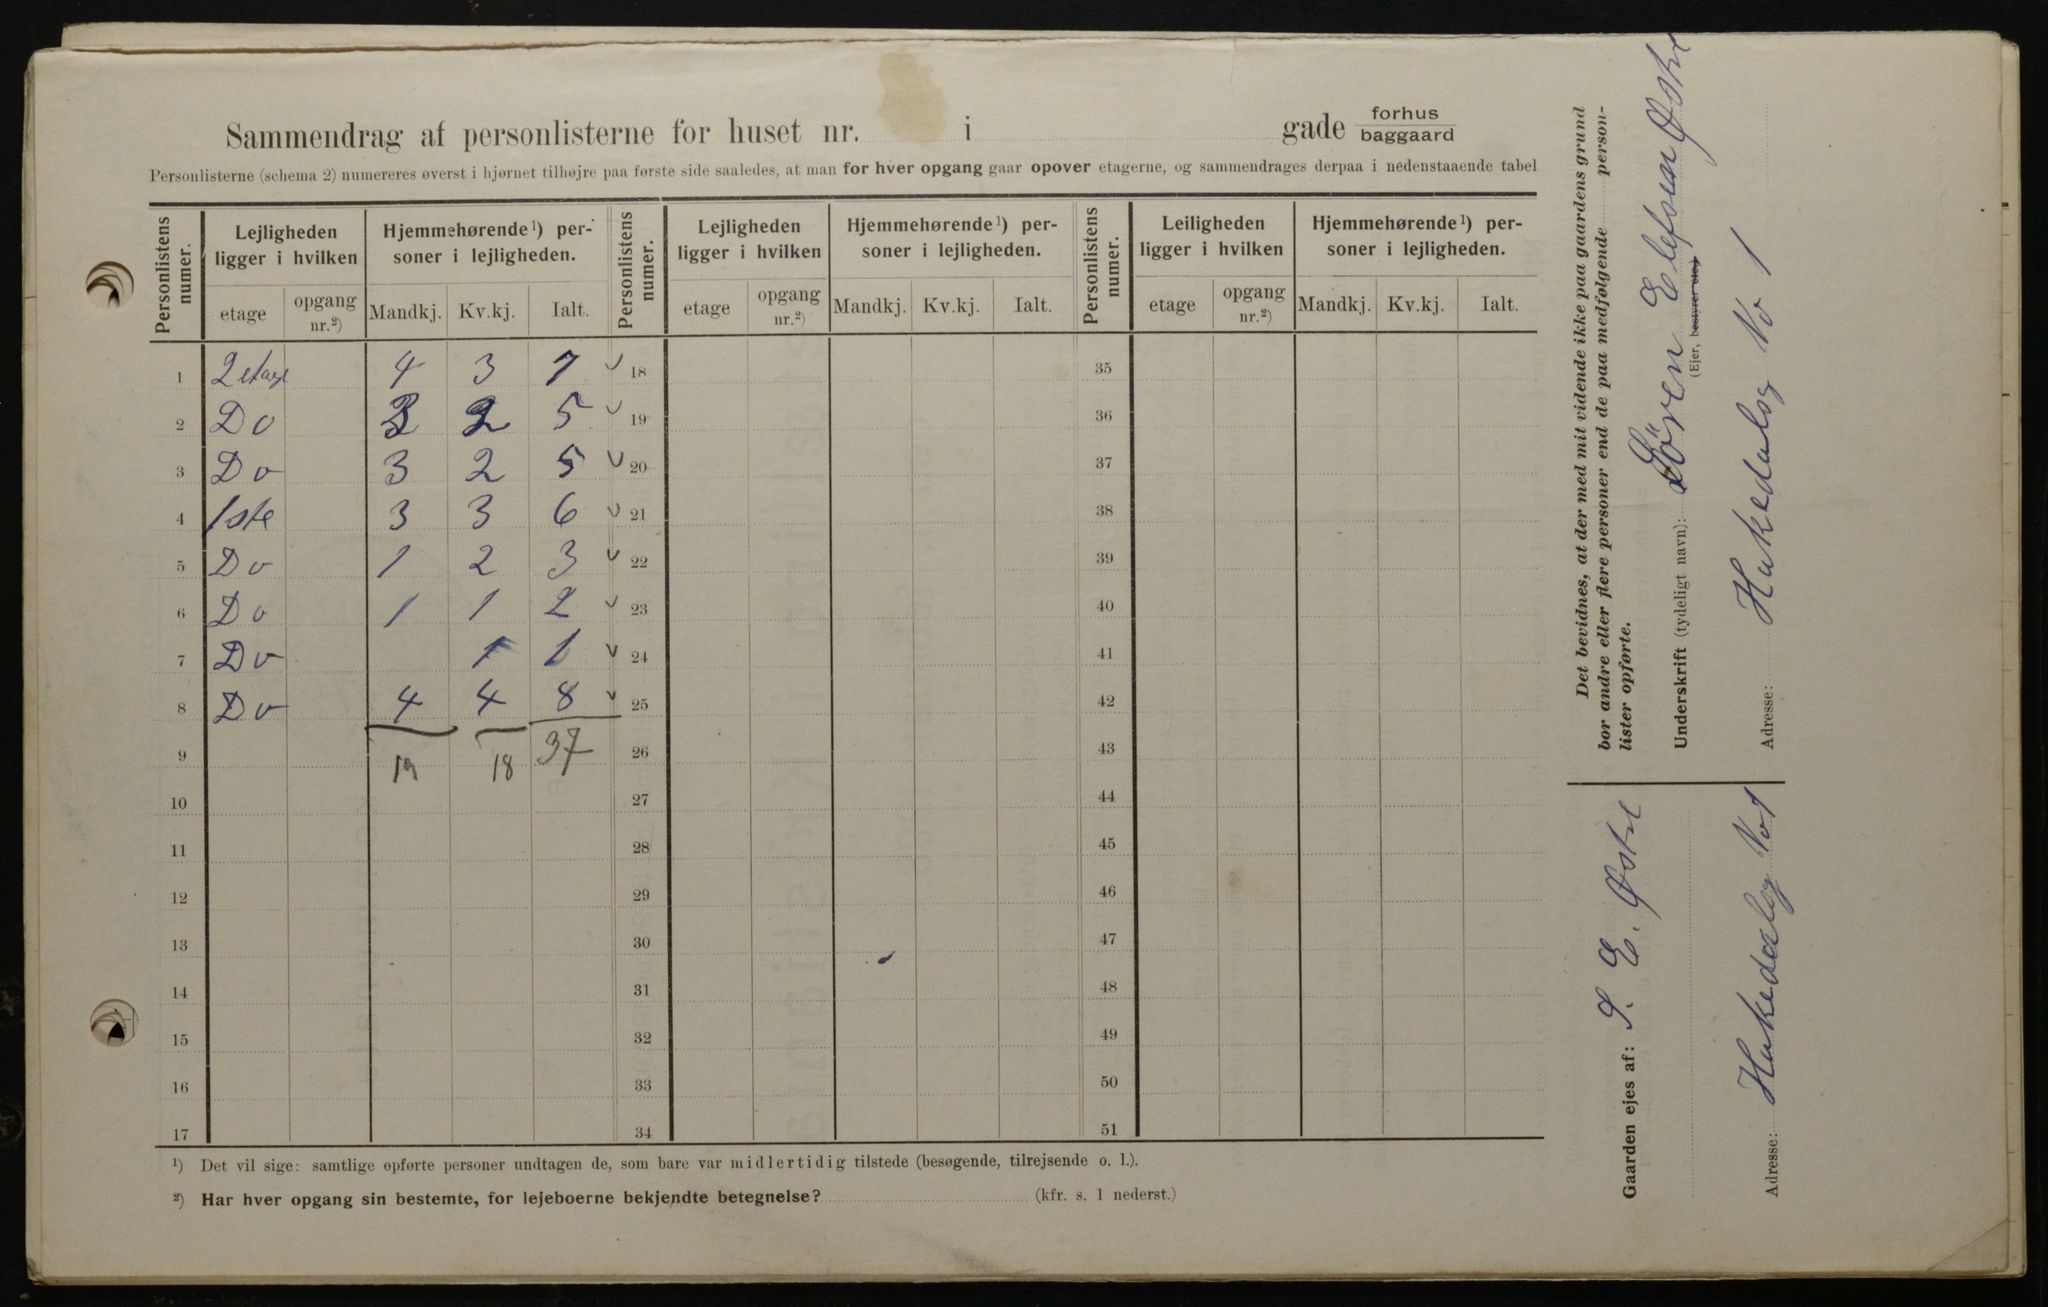 Sammendrag af personlisterne for huset nr. i gade forhus baggaard
Personlisterne (schema 2) numereres øverst i hjørnet tilhøjre paa første side saaledes, at man for hver opgang gaar opover etagerne, og sammendrages derpaa i nedenstaaende tabel
Personlistens numer. Lejligheden ligger i hvilken Hjemmehørende ¹) personer i lejligheden. Personlistens numer. Lejligheden ligger i hvilken Hjemmehørende ¹) personer i lejligheden. Personlistens numer. Leiligheden ligger i hvilken Hjemmehørende ¹) personer i lejligheden.
etage opgang nr.²) Mandkj. Kv.kj. Ialt. etage opgang nr.²) Mandkj. Kv.kj. Ialt. etage opgang nr.²) Mandkj. Kv.kj. Ialt.
1 2 etage 4 3 7 ✓ 18 35
2 Do 3 2 5 ✓ 19 36
3 Do 3 2 5 ✓ 20 37
4 1ste 3 3 6 ✓ 21 38
5 Do 1 2 3 ✓ 22 39
6 Do 1 1 2 ✓ 23 40
7 Do 1 1 ✓ 24 41
8 Do 4 4 8 ✓ 25 42
9 19 18 37 26 43
10 27 44
11 28 45
12 29 46
13 30 47
14 31 48
15 32 49
16 33 50
17 34 51
¹) Det vil sige: samtlige opførte personer undtagen de, som bare var midlertidig tilstede (besøgende, tilrejsende o. l.).
²) Har hver opgang sin bestemte, for lejeboerne bekjendte betegnelse? (kfr. s. 1 nederst.)
Det bevidnes, at der med mit vidende ikke paa gaardens grund
bor andre eller flere personer end de paa medfølgende person-
lister opførte.
Underskrift (tydeligt navn): Sören Elefsen Østre
(Ejer, bestyrer etc.)
Adresse: Hakedalsg No 1
Gaarden ejes af: S. E. Østre
Adresse: Hakedalsg No 1